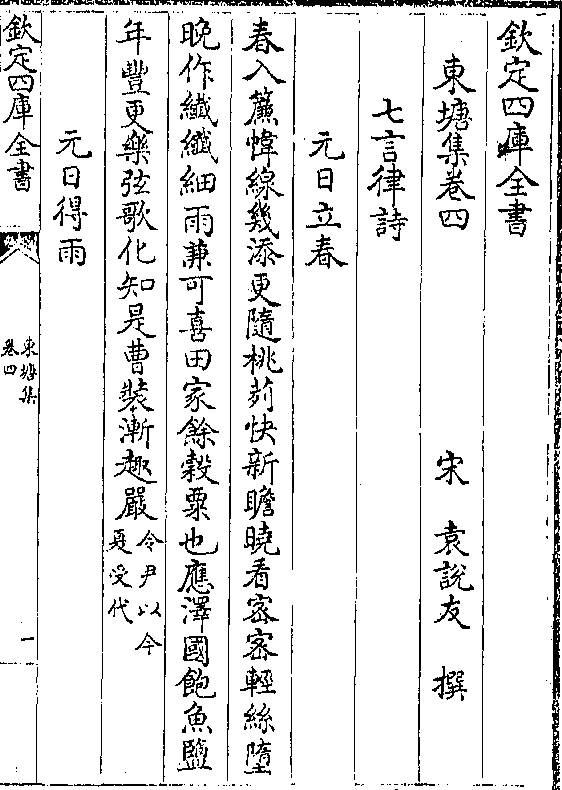 欽定四庫全書
東塘集卷四
宋 袁說友 撰
七言律詩
元日立春
春入簾幃線幾添更隨桃茢快新瞻曉看密密輕絲墮
晩作纖纖細雨兼可喜田家餘榖粟也應澤國飽魚鹽
年豐更樂弦歌化知是曹裝漸趣嚴
令尹以今
夏受代
元日得雨
欽定四庫全書
東塘集
卷四
一